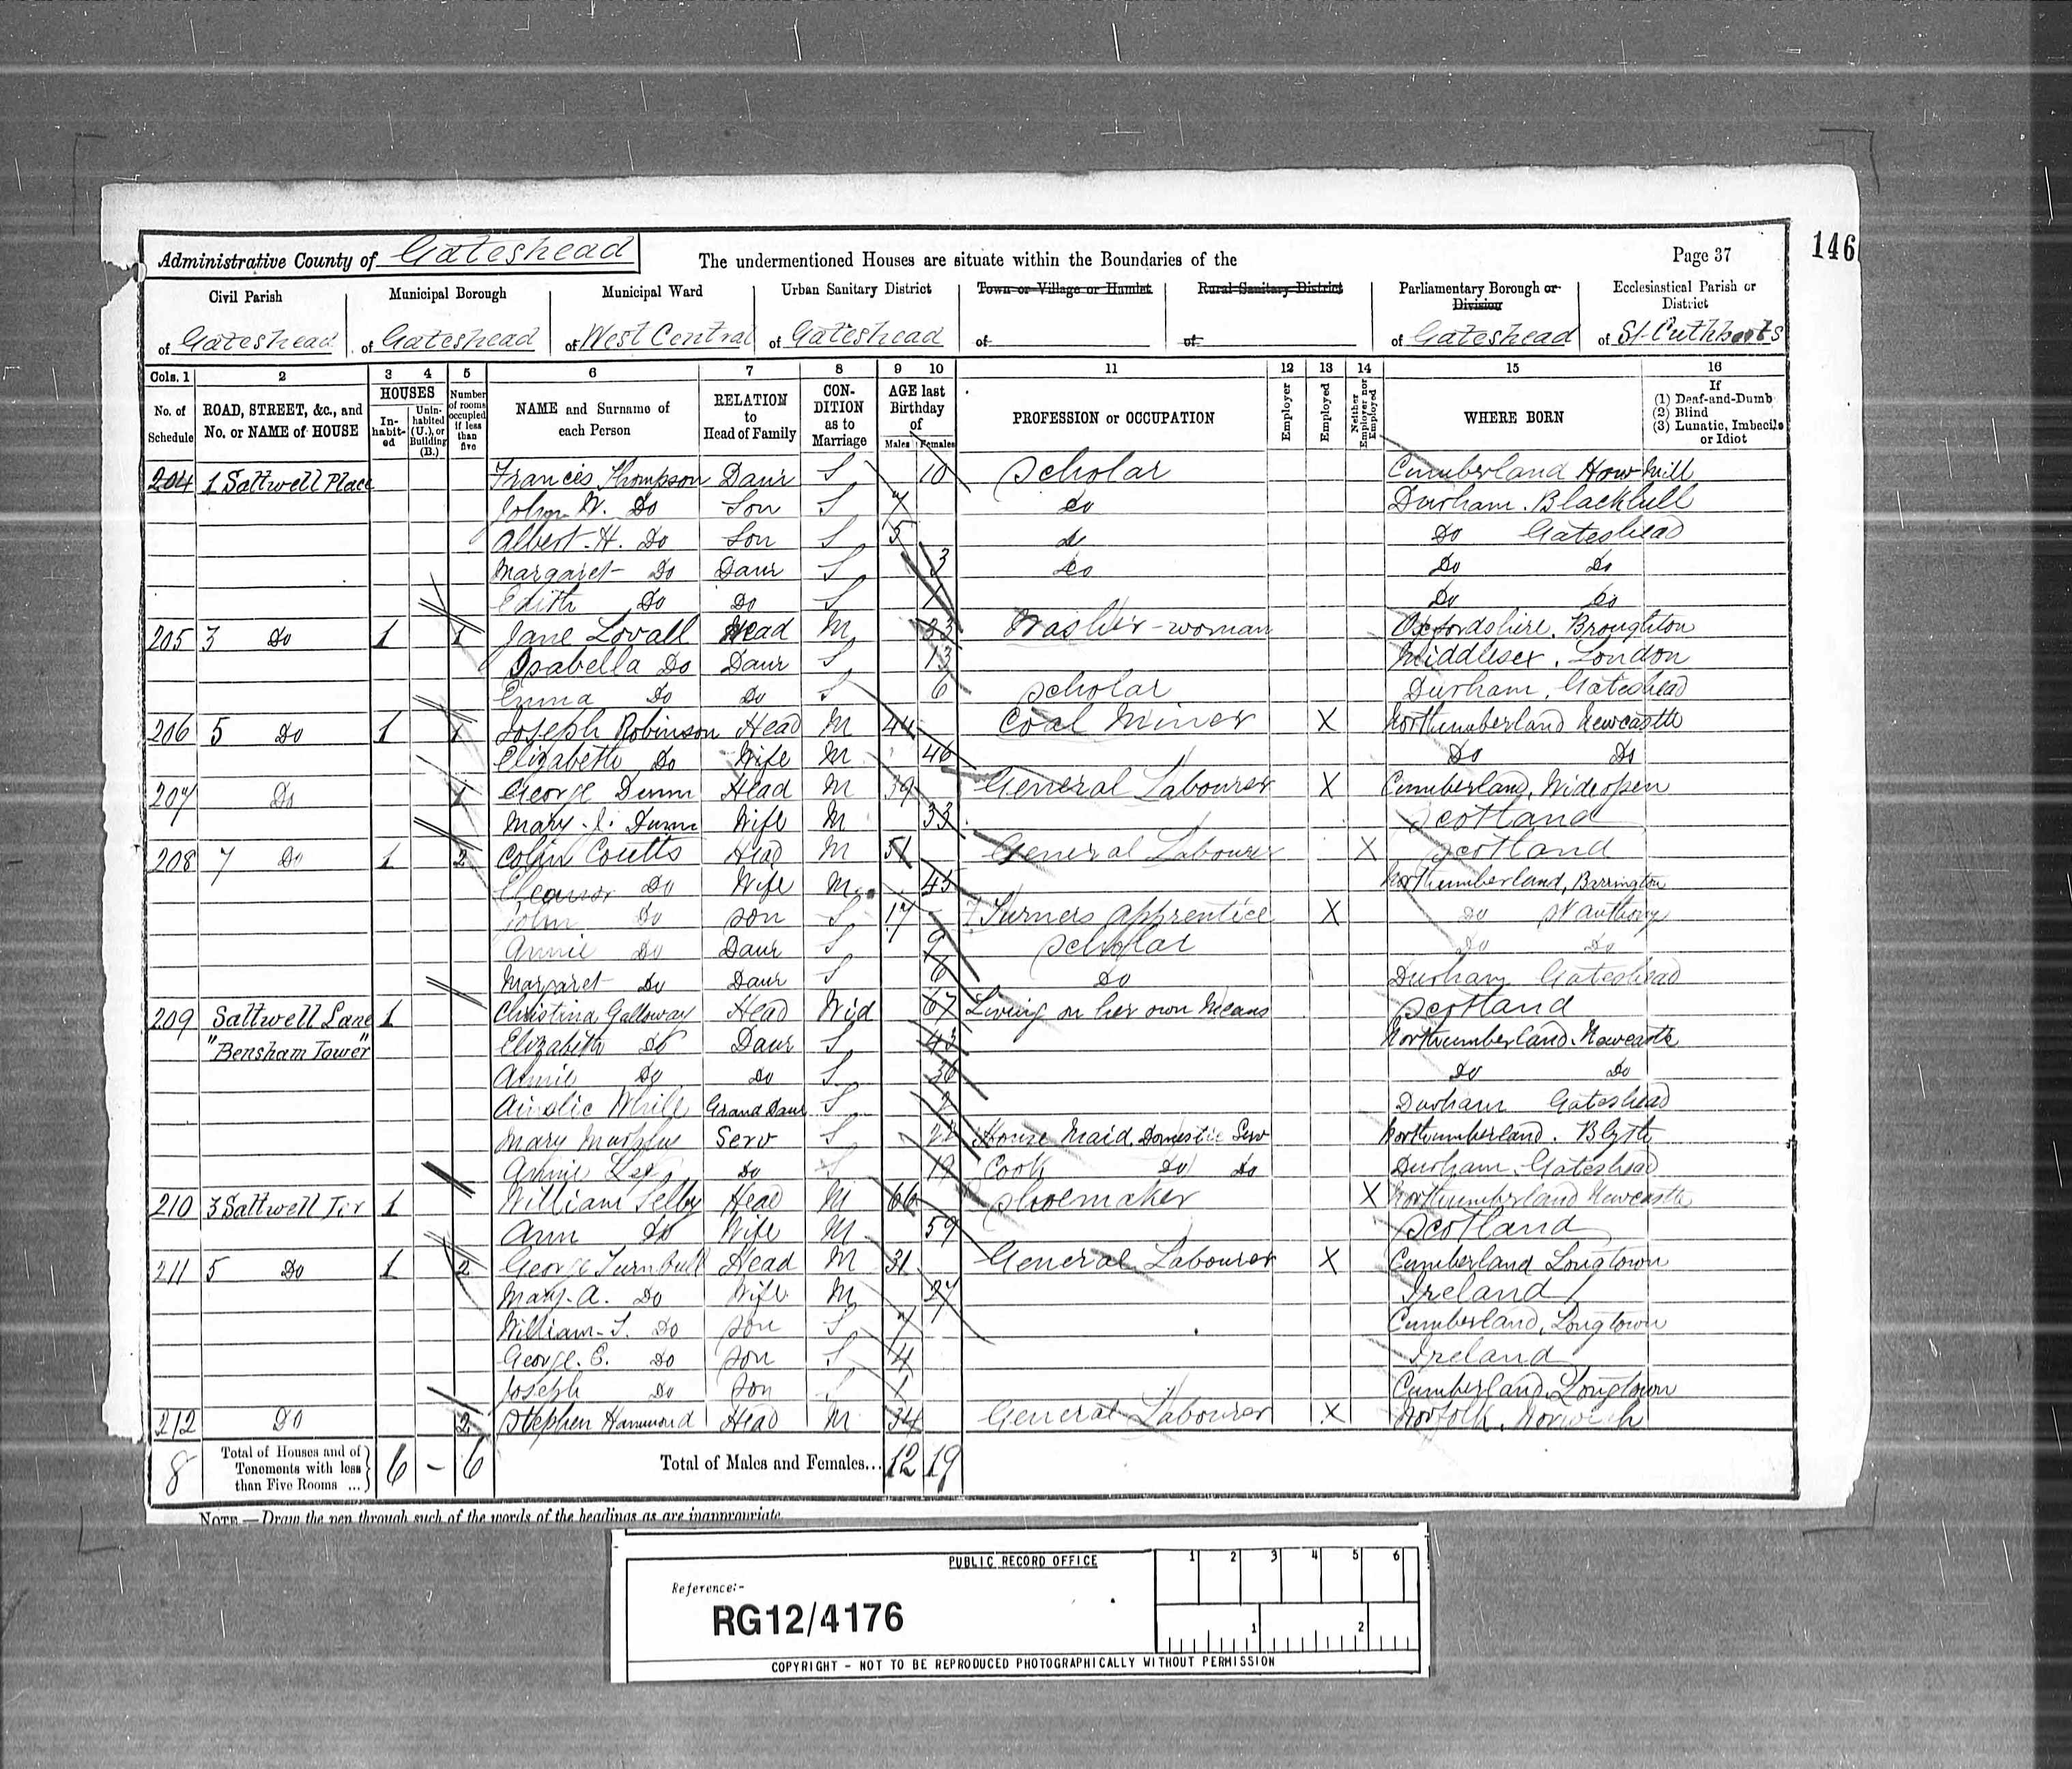 146
Administrative County of Gateshead The undermentioned Houses are situate within the Boundaries of the Page 37
Civil Parish Municipal Borough Municipal Ward Urban Sanitary District Town or Village or Hamlet Rural Sanitary District Parliamentary Borough or Division Ecclesiastical Parish or District
of Gateshead of Gateshead of West Central of Gateshead of of of Gateshead of St Cuthberts
Cols. 1 2 3 4 5 6 7 8 9 10 11 12 13 14 15 16
No. of Schedule ROAD, STREET, &c., and No. or NAME of HOUSE HOUSES Inhabited Uninhabited (U.), or Building (B.) Number of rooms occupied if less than five NAME and Surname of each Person RELATION to Head of Family CONDITION as to Marriage AGE last Birthday of Males Females PROFESSION or OCCUPATION Employer Employed Neither Employer nor Employed WHERE BORN If (1) Deaf-and-Dumb (2) Blind (3) Lunatic, Imbecile or Idiot
204 1 Saltwell Place Francis Thompson Daur S 10 Scholar Cumberland How Mill
John W. Do Son S 7 do Durham. Blackhill
Albert H. Do Son S 5 do Do Gateshead
Margaret Do Daur S 3 do Do Do
Edith Do Do S 1 Do Do
205 3 Do 1 1 Jane Lovall Head M Washer-woman Oxfordshire. Broughton
Isabella Do Daur S 13 Middlesex. London
Emma Do Do S 6 Scholar Durham. Gateshead
206 5 Do 1 1 Joseph Robinson Head M 44 Coal Miner X Northumberland Newcastle
Elizabeth Do Wife M 46 Do Do
207 Do 1 George Dunn Head M 39 General Labourer X Cumberland, Wideopen
Mary. J. Dunn Wife M 33 Scotland
208 7 Do 1 2 Colin Coutts Head M 51 General Labourer X Scotland
Eleanor Do Wife M 45 Northumberland, Barrington
John Do Son S 17 Turners apprentice X Do St Anthony
Annie Do Daur S 9 Scholar Do Do
Margaret Do Daur S 6 Do Durham Gateshead
209 Saltwell Lane 1 Christina Galloway Head Wid 67 Living on her own Means Scotland
"Bensham Tower" Elizabeth Do Daur S 43 Northumberland. Newcastle
Annie Do Do S 36 Do Do
Ainslie Grand Daur S Durham Gateshead
Mary Murphy Serv S House Maid, Domestic Serv Northumberland. Blyth
Annie Do S 19 Cook Do Do Durham. Gateshead
210 3 Saltwell Ter 1 William Selby Head M 66 Shoemaker X Northumberland Newcastle
Ann Do Wife M 59 Scotland
211 5 Do 1 2 George Turnbull Head M 31 General Labourer X Cumberland Longtown
Mary. A. Do Wife M 27 Ireland
William. T. Do Son S 7 Cumberland, Longtown
George. E. Do Son S 4 Ireland
Joseph Do Son S 1 Cumberland. Longtown
212 Do 2 Stephen Hammond Head M 34 General Labourer X Norfolk. Norwich
8 Total of Houses and of Tenements with less than Five Rooms ... 6 - 6 Total of Males and Females... 12 19
NOTE.—Draw the pen through such of the words of the headings as are inappropriate.
PUBLIC RECORD OFFICE 1 2 3 4 5 6
Reference:-
RG12/4176 1 2
COPYRIGHT - NOT TO BE REPRODUCED PHOTOGRAPHICALLY WITHOUT PERMISSION